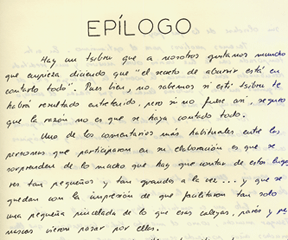 EPÍLOGO
Hay un tsibru que a nosotros gustamos mucho
que empieza diciendo que "el secreto de aburrir está en
contarlo todo". Pues bien, no sabemos si este tsibru te
habrá resultado entretenido, pero si no fuese así, seguro
que la razón no es que se haya contado todo.
Uno de los comentarios más habituales entre las
personas que participaron en su elaboración es que se
sorprenden de lo mucho que hay que contar de estos luga-
res tan pequeños y tan grandes a la vez... y que se
quedan con la impresión de que facilitaron tan solo
una pequeña pincelada de lo que esas caleyas, parés y pe
nuncas vieron pasar por elles.